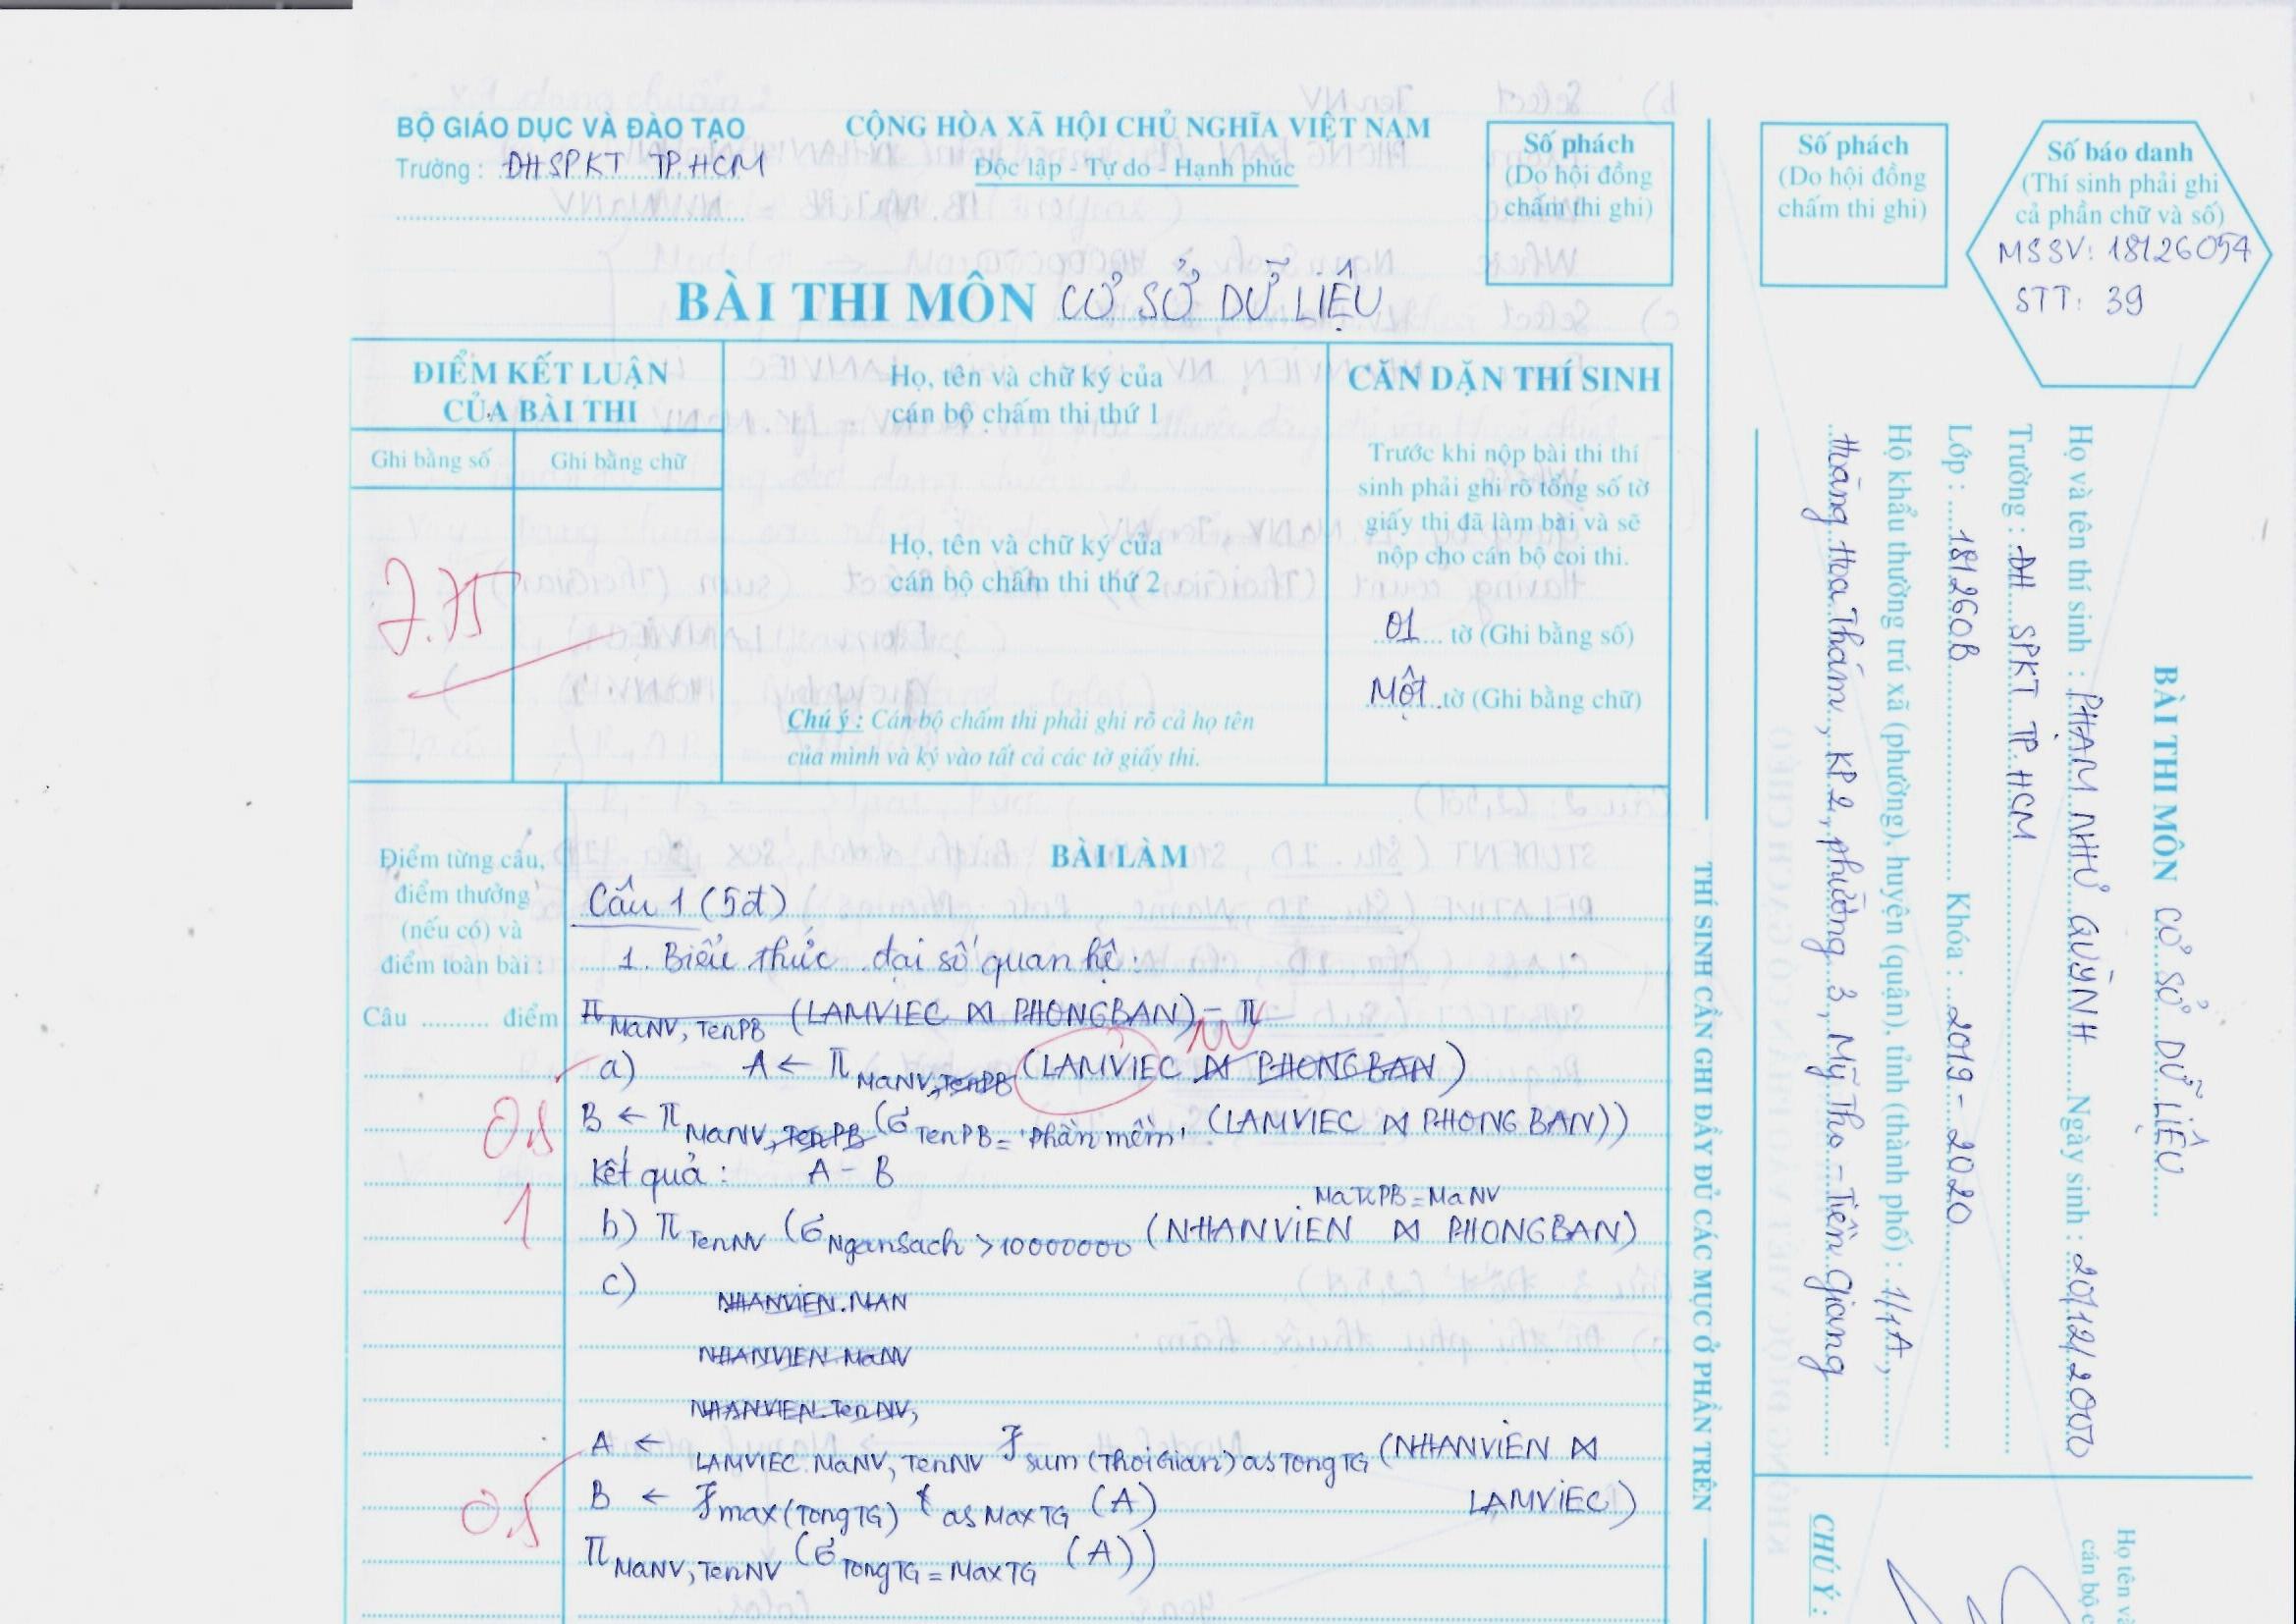 BỘ GIÁO DỤC VÀ ĐÀO TẠO
Trường : ĐHSPKT TP.HCM
CỘNG HÒA XÃ HỘI CHỦ NGHĨA VIỆT NAM
Độc lập - Tự do - Hạnh phúc
Số phách
(Do hội đồng
chấm thi ghi)
BÀI THI MÔN CƠ SỞ DỮ LIỆU
ĐIỂM KẾT LUẬN
CỦA BÀI THI
Ghi bằng số
Ghi bằng chữ
7.75
Họ, tên và chữ ký của
cán bộ chấm thi thứ 1
Họ, tên và chữ ký của
cán bộ chấm thi thứ 2
Chú ý : Cán bộ chấm thi phải ghi rõ cả họ tên
của mình và ký vào tất cả các tờ giấy thi.
CĂN DẶN THÍ SINH
Trước khi nộp bài thi thí
sinh phải ghi rõ tổng số tờ
giấy thi đã làm bài và sẽ
nộp cho cán bộ coi thi.
01 tờ (Ghi bằng số)
Một tờ (Ghi bằng chữ)
Điểm từng câu,
điểm thưởng
(nếu có) và
điểm toàn bài :
Câu .......... điểm
BÀI LÀM
Câu 1 (5đ)
1. Biểu thức đại số quan hệ:
π MaNV, TenPB (LAMVIEC ⋈ PHONGBAN) - π
a) A ← π MaNV, TenPB (LAMVIEC ⋈ PHONGBAN)
0.5
B ← π MaNV, TenPB (σ TenPB = 'Phần mềm' (LAMVIEC ⋈ PHONGBAN))
Kết quả : A - B
1
MaTrPB = MaNV
b) π TenNV (σ NganSach > 10000000 (NHANVIEN ⋈ PHONGBAN)
c)
NHANVIEN.MAN
NHANVIEN.MaNV
NHANVIEN.TenNV,
A ← LAMVIEC.MaNV, TenNV ℱ sum (ThoiGian) as TongTG (NHANVIEN ⋈
LAMVIEC)
0.5
B ← ℱ max (TongTG) as MaxTG (A)
π MaNV, TenNV (σ TongTG = MaxTG (A))
THÍ SINH CẦN GHI ĐẦY ĐỦ CÁC MỤC Ở PHẦN TRÊN
Số phách
(Do hội đồng
chấm thi ghi)
Số báo danh
(Thí sinh phải ghi
cả phần chữ và số)
MSSV: 18126054
STT: 39
BÀI THI MÔN CƠ SỞ DỮ LIỆU
Họ và tên thí sinh : PHẠM NHƯ QUỲNH Ngày sinh : 20/12/2000
Trường : ĐH SPKT TP.HCM
Lớp : 18126OB Khóa : 2019 - 2020
Hộ khẩu thường trú xã (phường), huyện (quận), tỉnh (thành phố) : 1/1A,
Hoàng Hoa Thám, KP2, phường 3, Mỹ Tho - Tiền Giang
CHÚ Ý :
Họ tên và
cán bộ